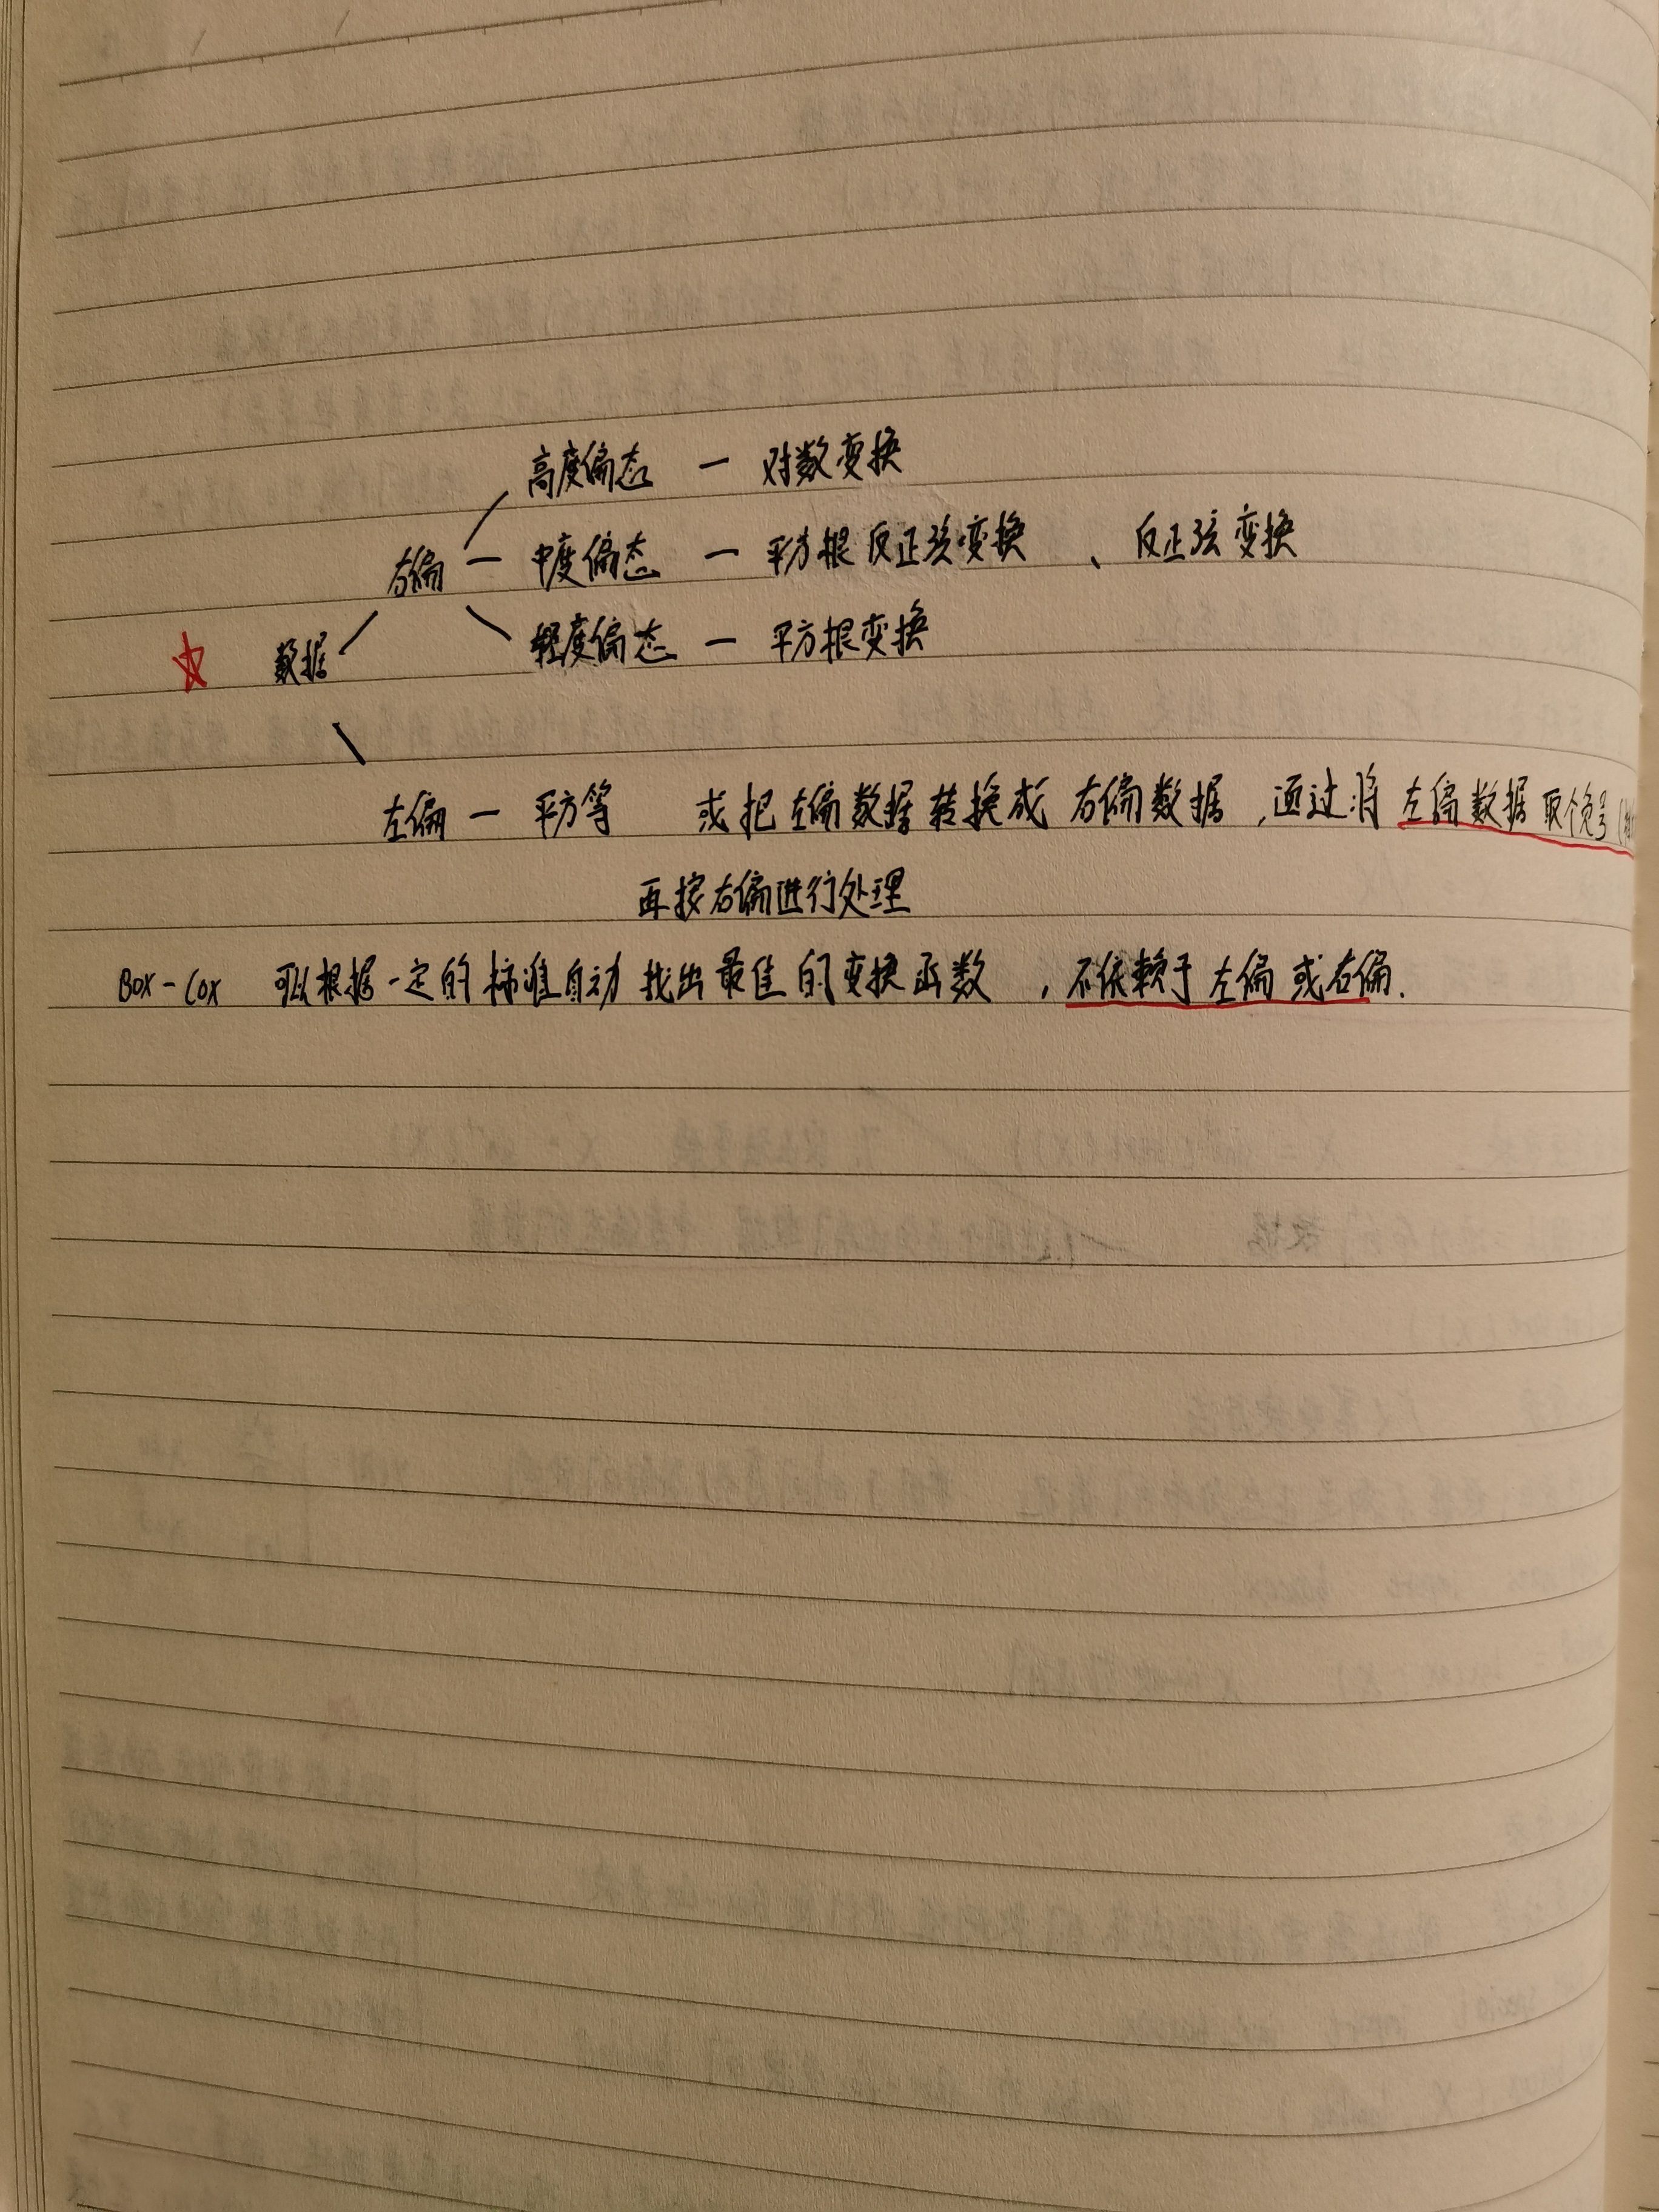 高度偏态 — 对数变换
右偏 — 中度偏态 — 平方根反正弦变换 、 反正弦变换
轻度偏态 — 平方根变换
数据
左偏 — 平方等 或把左偏数据转换成右偏数据,通过将左偏数据取个负号
再按右偏进行处理
Box-Cox 可以根据一定的标准自动找出最佳的变换函数 ,不依赖于左偏或右偏.